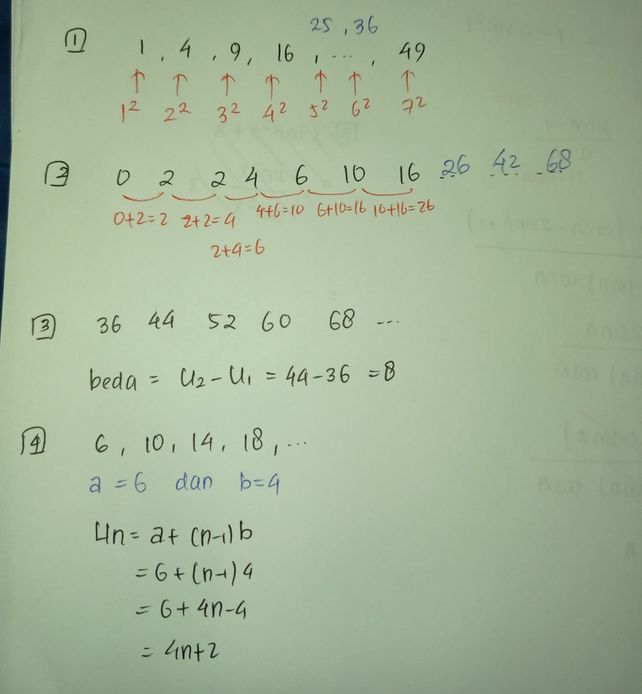 25, 36
1 1, 4, 9, 16, ..., 49
↑ ↑ ↑ ↑ ↑ ↑ ↑
1² 2² 3² 4² 5² 6² 7²
2 0 2 2 4 6 10 16 26 42 68
0+2=2 2+2=4 4+6=10 6+10=16 10+16=26
2+4=6
3 36 44 52 60 68 ...
beda = U₂ - U₁ = 44-36 = 8
4 6, 10, 14, 18, ...
a = 6 dan b=4
Un = a+ (n-1) b
= 6 + (n-1) 4
= 6 + 4n-4
= 4n+2